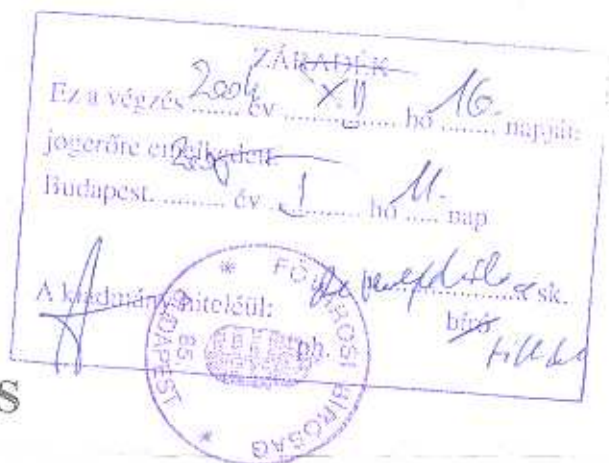 ZÁRADÉK
Ez a végzés 2004 év XII hó 16. napján
jogerőre emelkedett.
Budapest. év I hó 11. nap
A kiadmány hiteléül: sk.
bíró
ph.
* FŐVÁROSI BÍRÓSÁG * BUDAPEST 85
S